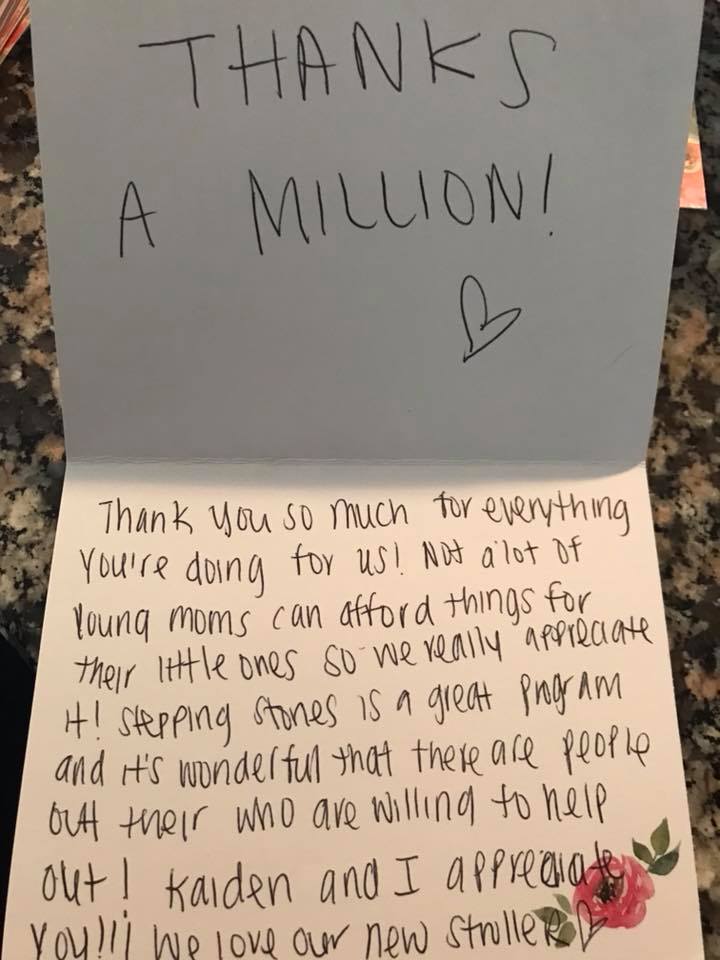 THANKS
A MILLION!
Thank you so much for everything
you're doing for us! Not a lot of
young moms can afford things for
their little ones so we really appreciate
it! Stepping Stones is a great program
and it's wonderful that there are people
out their who are willing to help
out! Kaiden and I appreciate
you!!! We love our new stroller